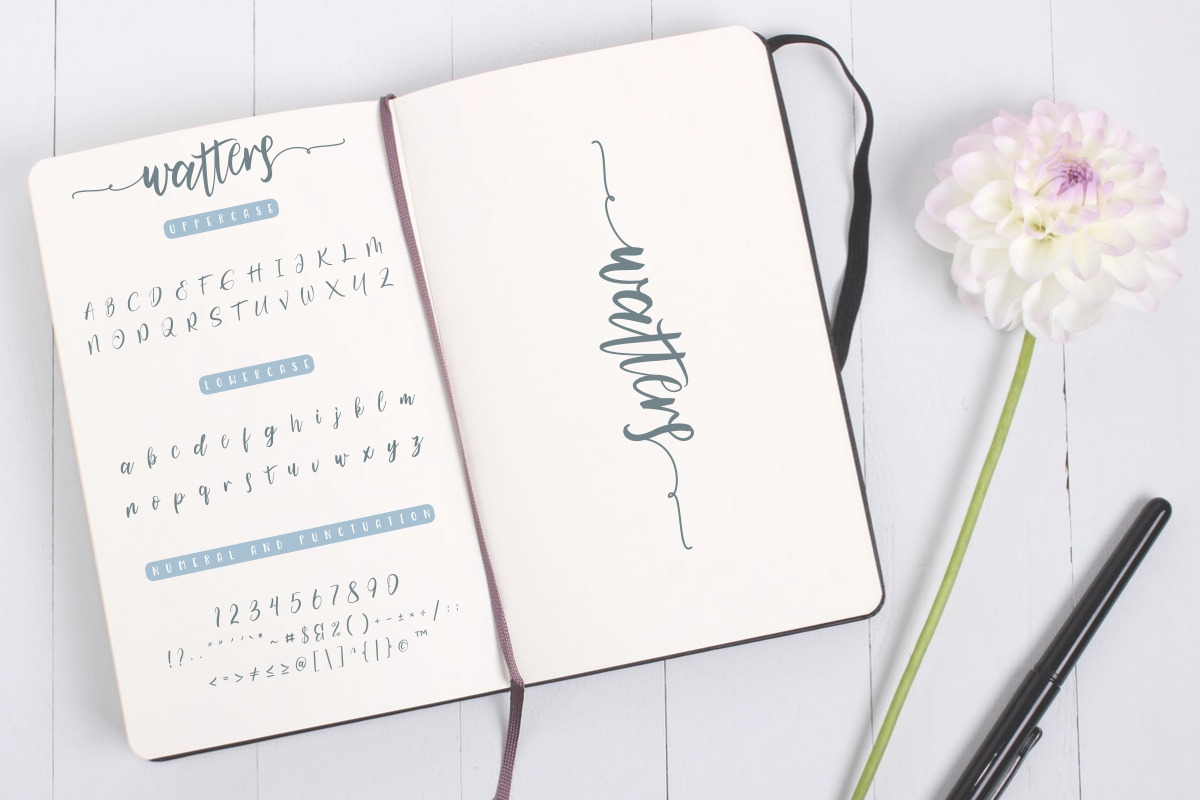 watters
UPPERCASE
A B C D E F G H I J K L M
N O P Q R S T U V W X Y Z
LOWERCASE
a b c d e f g h i j k l m
n o p q r s t u v w x y z
NUMERAL AND PUNCTUATION
1 2 3 4 5 6 7 8 9 0
! ? . . " " ' ' ` * ~ # $ & % ( ) + - ± × ÷ / : ;
< = > ≠ ≤ ≥ @ [ \ ] ^ { | } © ™
watters